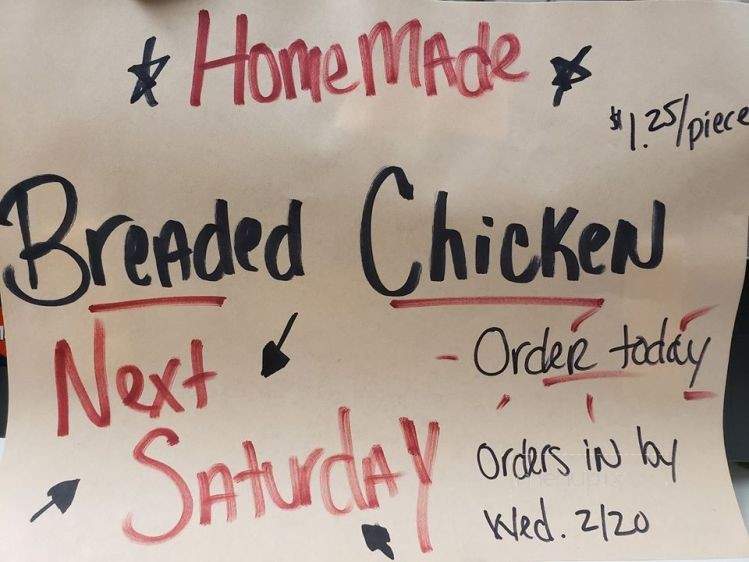 Homemade
$1.25/piece
Breaded Chicken
Next
Order today
Saturday
Orders in by
Wed. 2/20